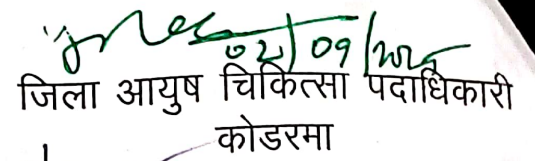 02/09/2025
जिला आयुष चिकित्सा पदाधिकारी
कोडरमा